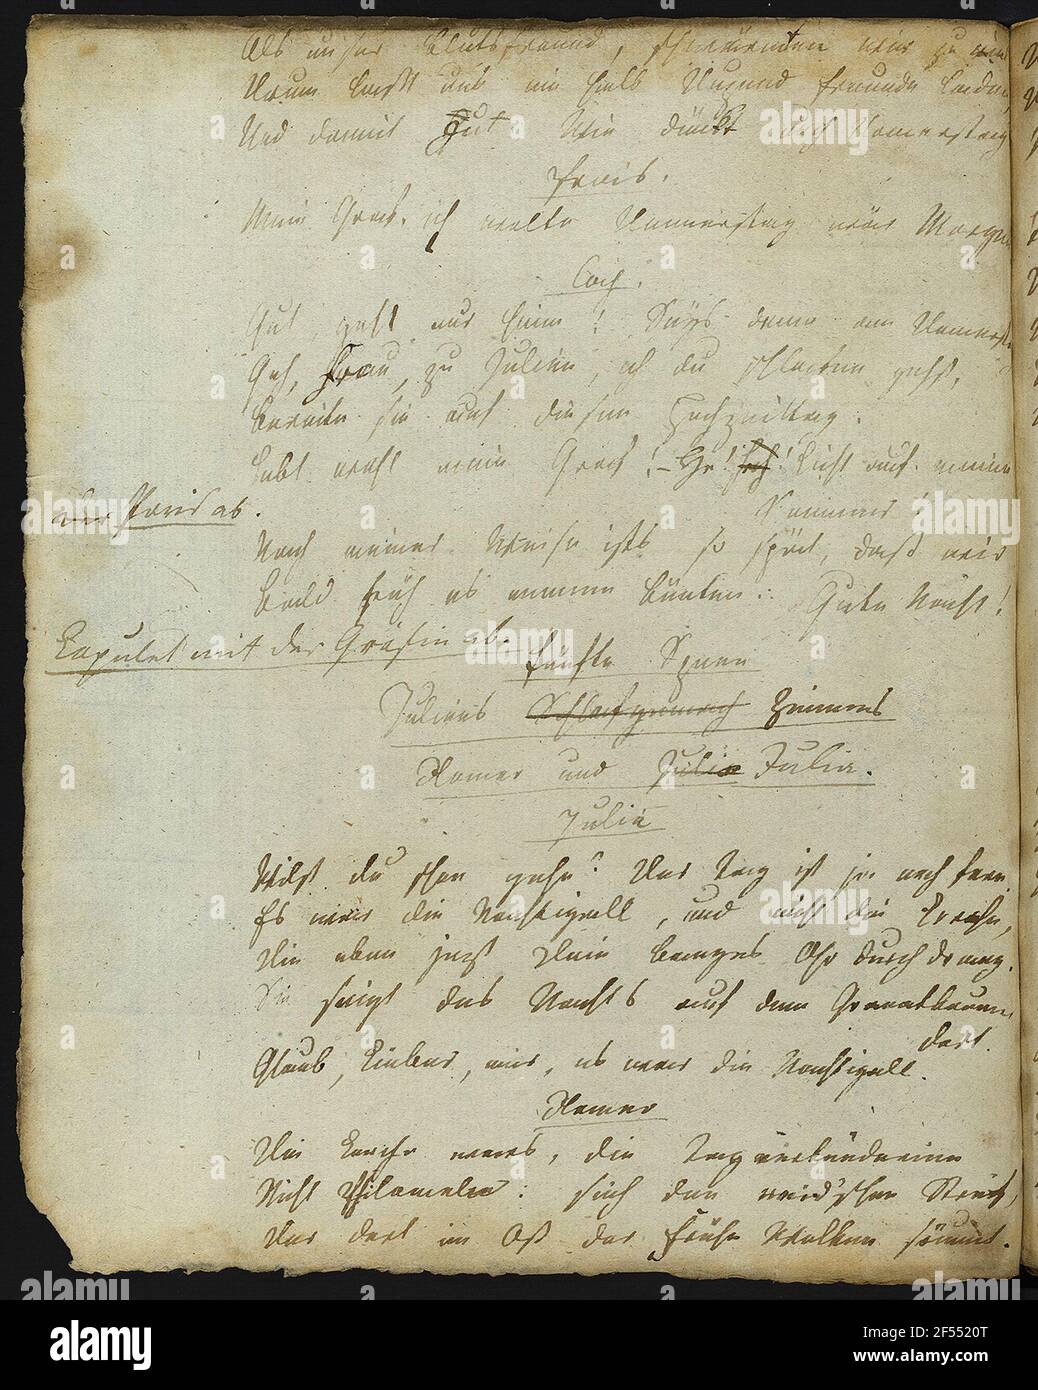 Als unser Blutsfreund, schmeichelten wir zu
Drum laßt uns ein halb Dutzend Freunde laden,
Und damit gut. Wie dünkt euch Donnerstag
Paris.
Mein Graf, ich wollte Donnerstag wär Morgen
Cap.
Gut, geht nur heim! Seys denn am Donnerst
Geh, Frau, zu Julien, eh du schlafen gehst,
Bereite sie auf diesen Hochzeittag.
Lebt wohl mein Graf! – He! Licht auf meine
Kammer!
Paris ab.
Nach meiner Weise ists so spät, daß wir
Bald früh es nennen könnten. Gute Nacht!
Capulet mit der Gräfin ab.
Fünfte Szene
Juliens Schlafgemach Zimmer
Romeo und Julie Julia.
Julia
Wilst du schon gehn? Der Tag ist ja noch fern.
Es war die Nachtigall, und nicht die Lerche,
Die eben jezt Dein banges Ohr durchdrang.
Sie singt des Nachts auf dem Granatbaum
dort.
Glaub, Lieber, mir, es war die Nachtigall.
Romeo
Die Lerche wars, die Tagverkünderinn
Nicht Philomele: sieh den neid'schen Streif,
Der dort im Ost der Frühe Wolken säumt.
alamy
Image ID: 2F5520T
www.alamy.com